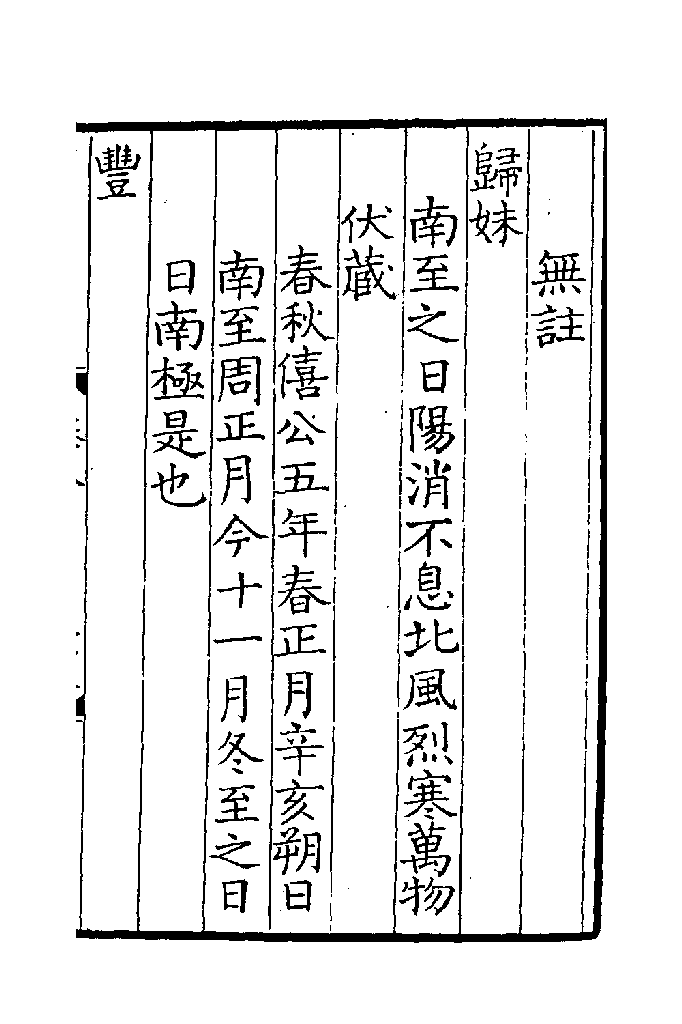 無註
歸妹
南至之日陽消不息北風烈寒萬物
伏藏
春秋僖公五年春正月辛亥朔日
南至周正月今十一月冬至之日
日南極是也
豐